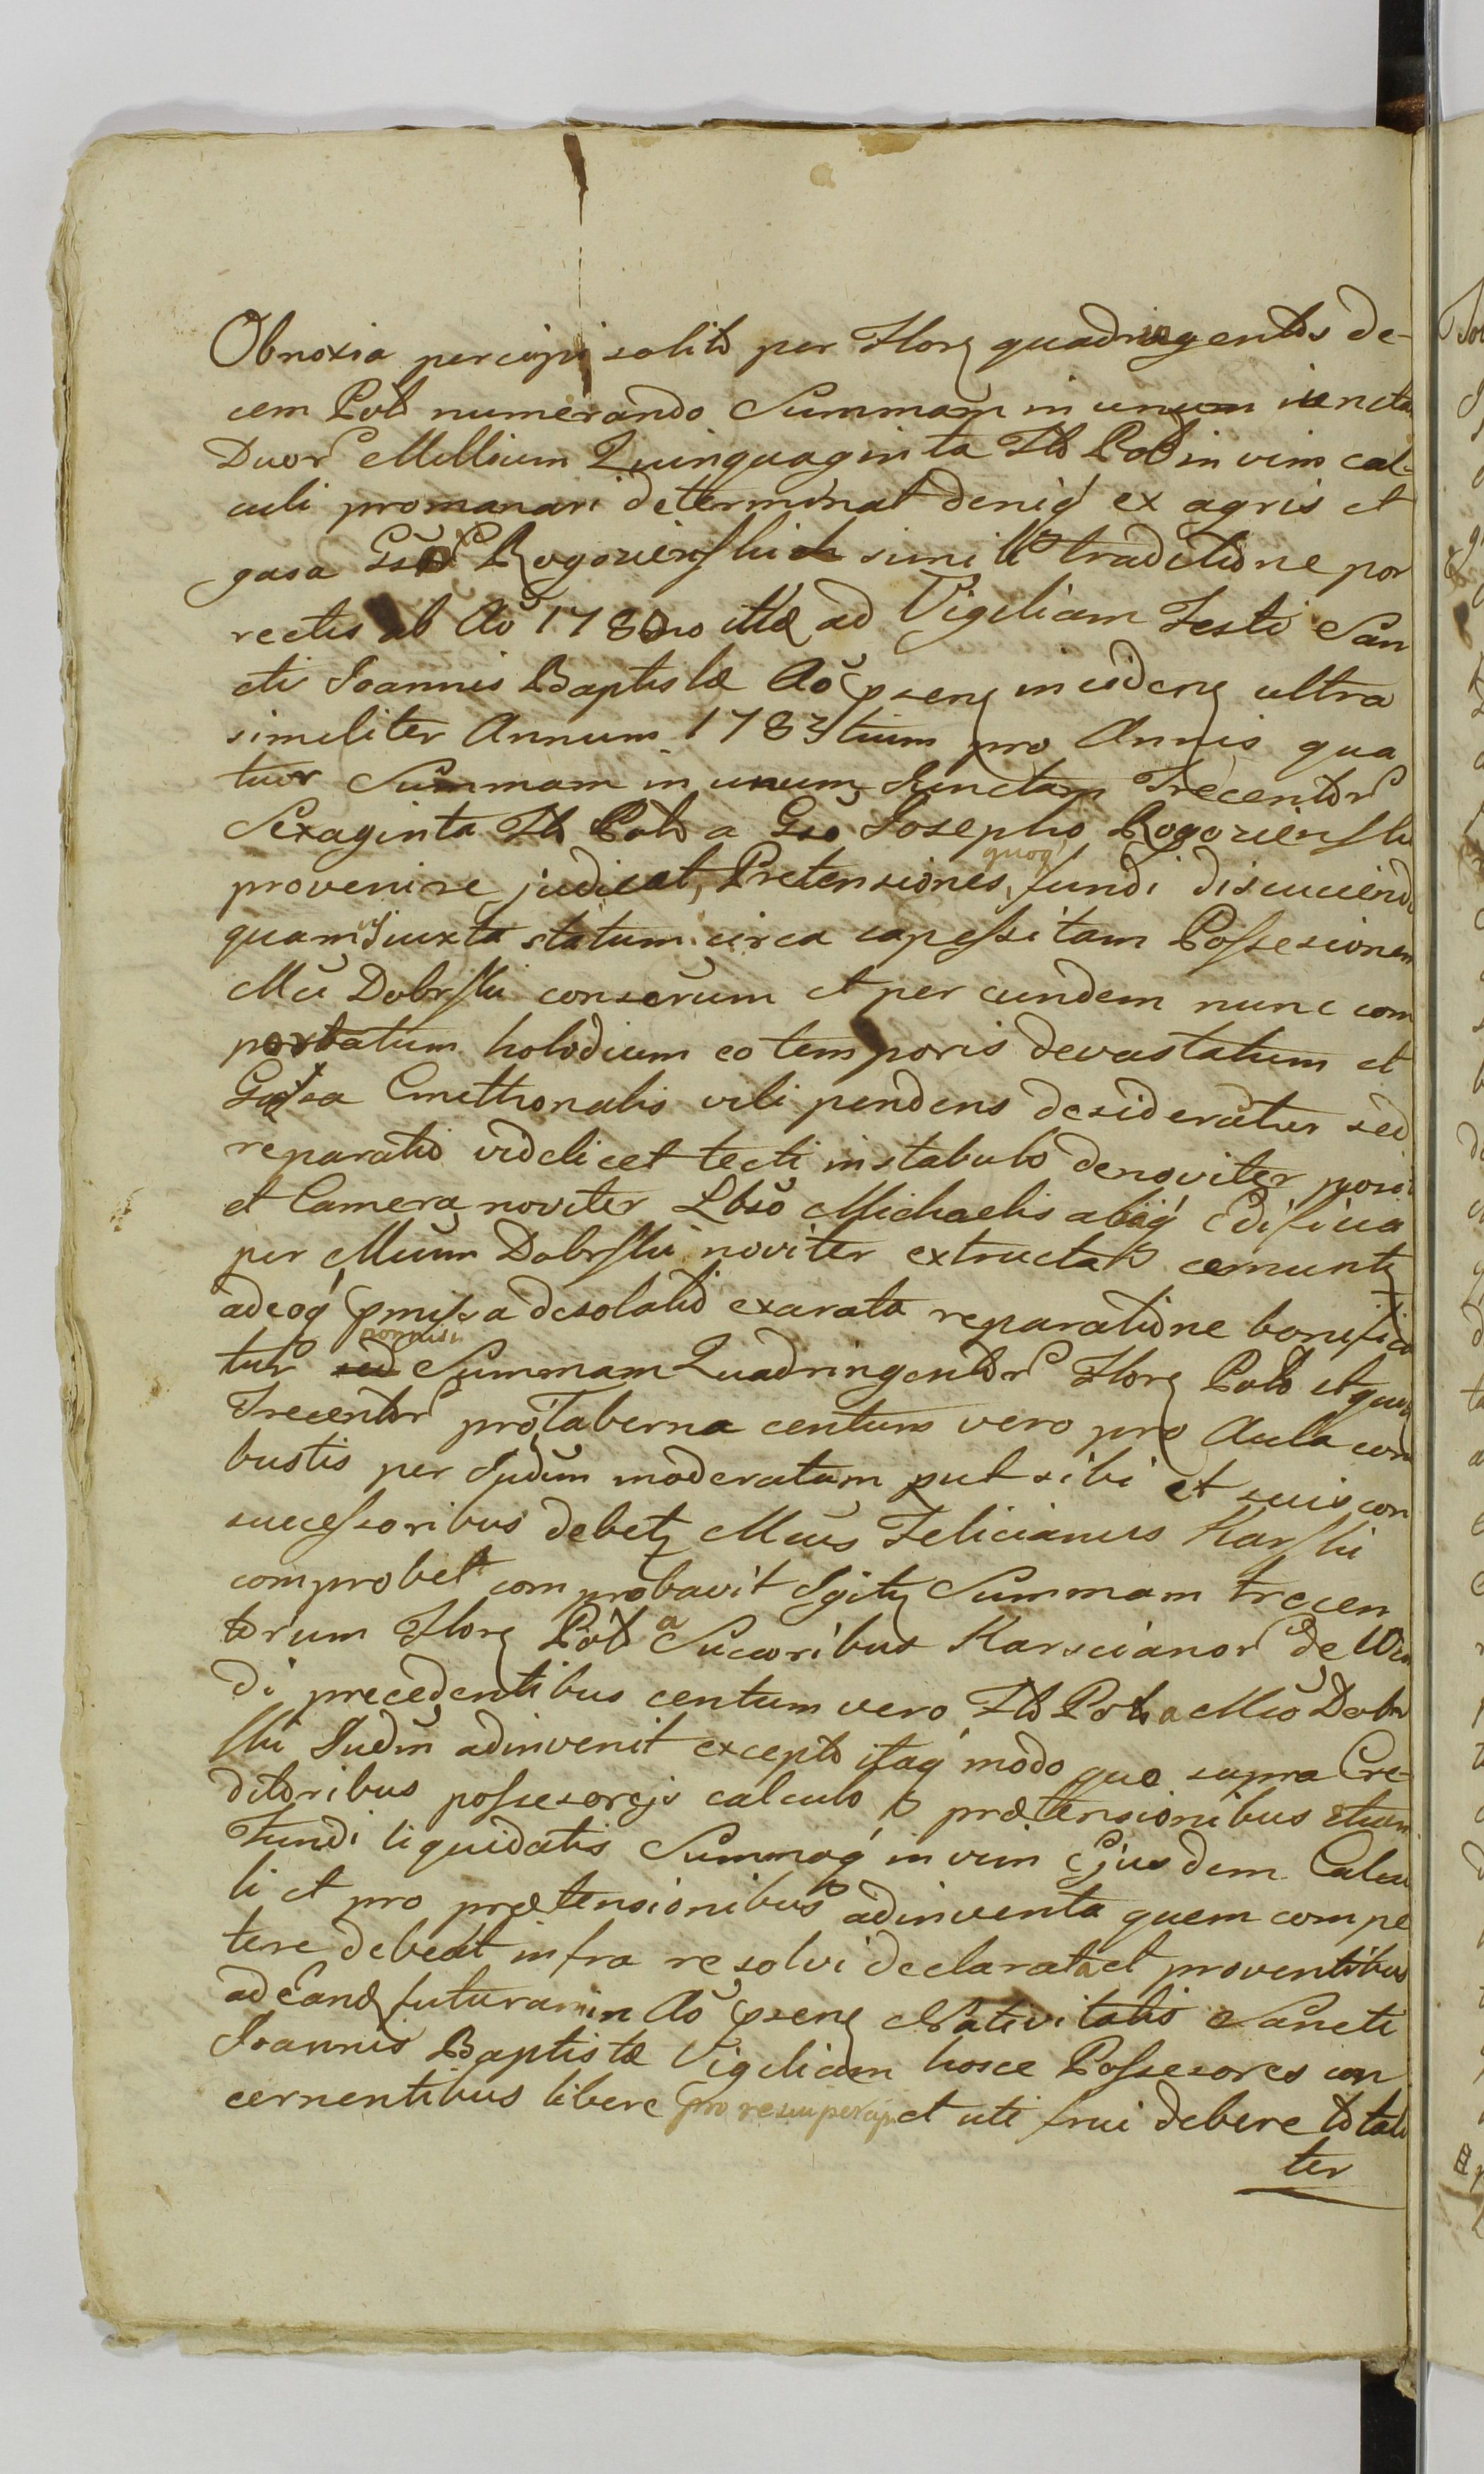 Obnoxia percipi solito per Flor quadringentos de-
cem Pol numerando Summam in unum iuncta
Duor Millium Quinquaginta Fl Pol in vim cal-
culi promanari determinat deniq ex agris et
gasa Gso Rogozienski simili traditione por
rectis ab Ao 1780no itta ad Vigiliam Festi San
cti Joannis Baptistæ Ao psens incidens ultra
similiter Annum 1783tium pro Annis qua
tuor Summam in unum Junctam Trecentor
Sexaginta Fl Pol a Gso Josepho Rogozienski
provenire judicat, Pretensiones quoq fundi discuciendo
quamvis Juxta statum circa capessitam Possesionem
Mci Dobrski conserum et per eundem nunc com
portatum holodium eo temporis devastatum et
Gasa Cmethonalis vili pendens desideratur sed
reparatio videlicet tecti in stabulo denoviter posi
et Camera noviter Lbso Michaelis aliaq Edificia
per Mcum Dobrski noviter extructa cernunt
adeoq pmissa desolatio exarata reparatione bonifica
tur sed nonnisi Summam Quadringentor Flor Pol et qui
Trecentor pro Taberna centum vero pro Aula com
bustis per Judum moderatam put sibi et suis con
successoribus debet Mcus Felicianus Karski
comprobet comprobavit Igitur Summam trecen
torum Flor Pol a Succoribus Karscianor de Win
di precedentibus centum vero Fl Pol a Mco Dobr
ski Judm adinvenit excepto itaq modo quo supra Cre-
ditoribus possesorejs calculo prætensionibus etiam
Fundi liquidatis Summaq in vim Ejusdem Calcu
li et pro prætensionibus adinventa quem compe
tere debeat infra resolvi declarata et proventibus
ad Eand futuram in Ao psens Nativitatis Sancti
Joannis Baptistæ Vigiliam hosce Possesores con
cernentibus libere et uti frui debere totali
ter